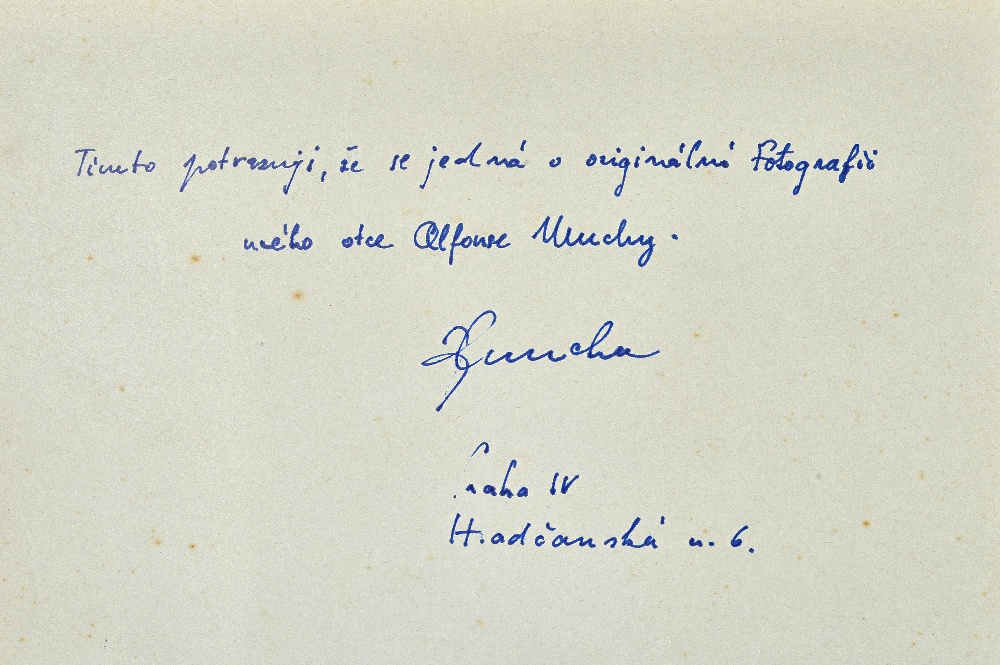 Tímto potvrzuji, že se jedná o originální Fotografii
mého otce Alfonse Muchy.
Mucha
Praha IV
Hradčanská u. 6.